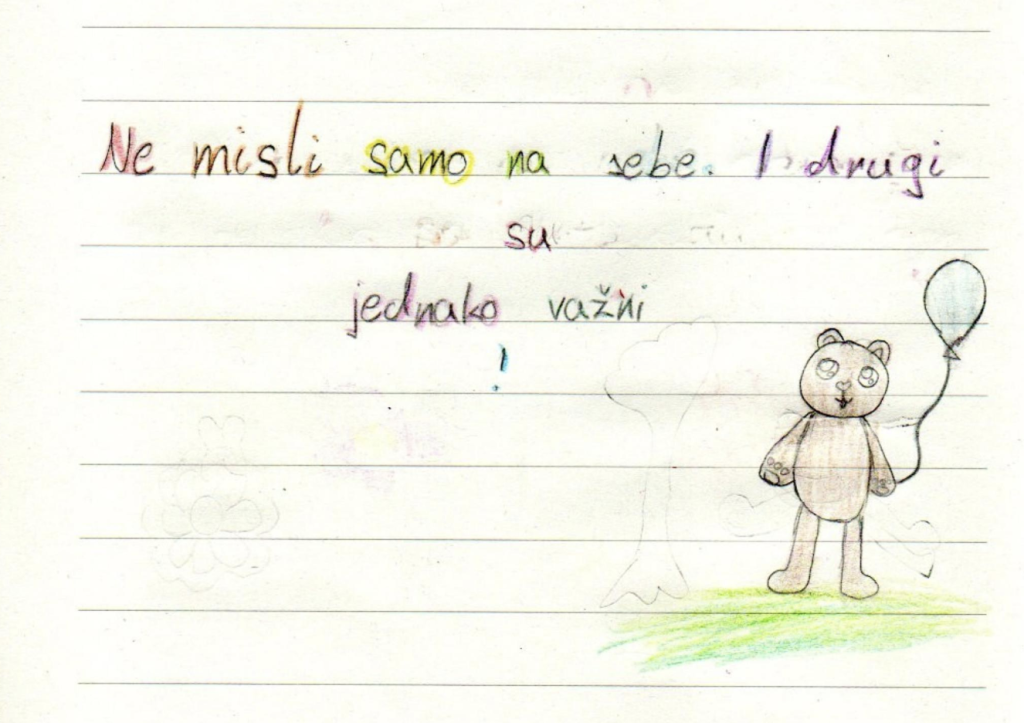 Ne misli samo na sebe. I drugi
su
jednako važni
!